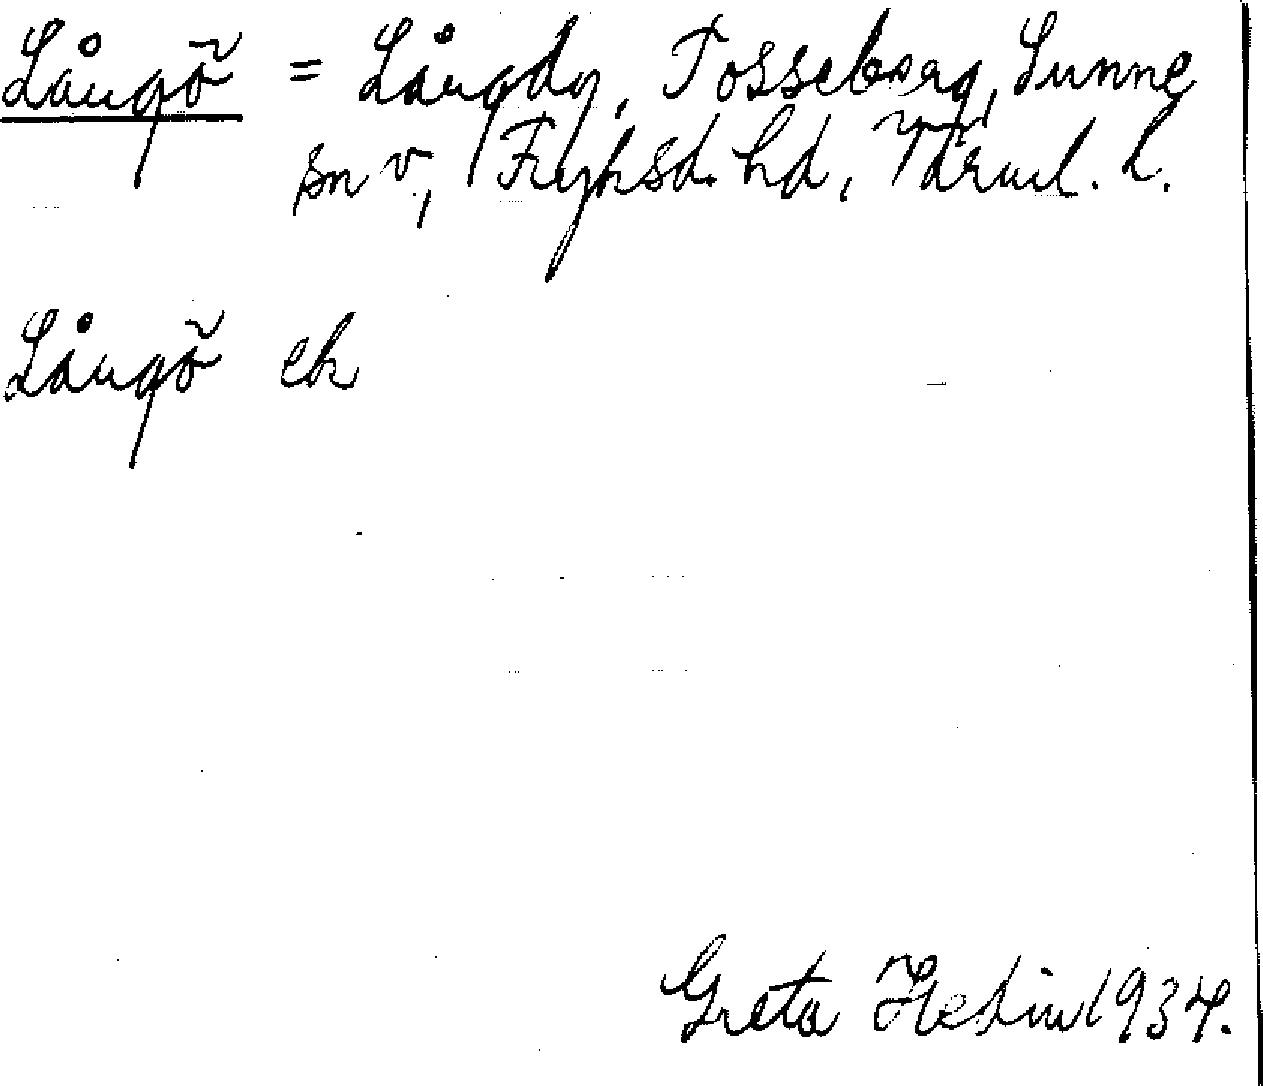 Långõ = Långdy, Tosseberg, Sunne
sn v, Fryksd. hd, Värml. l.
Långõ ek
Greta Hedin 1934.